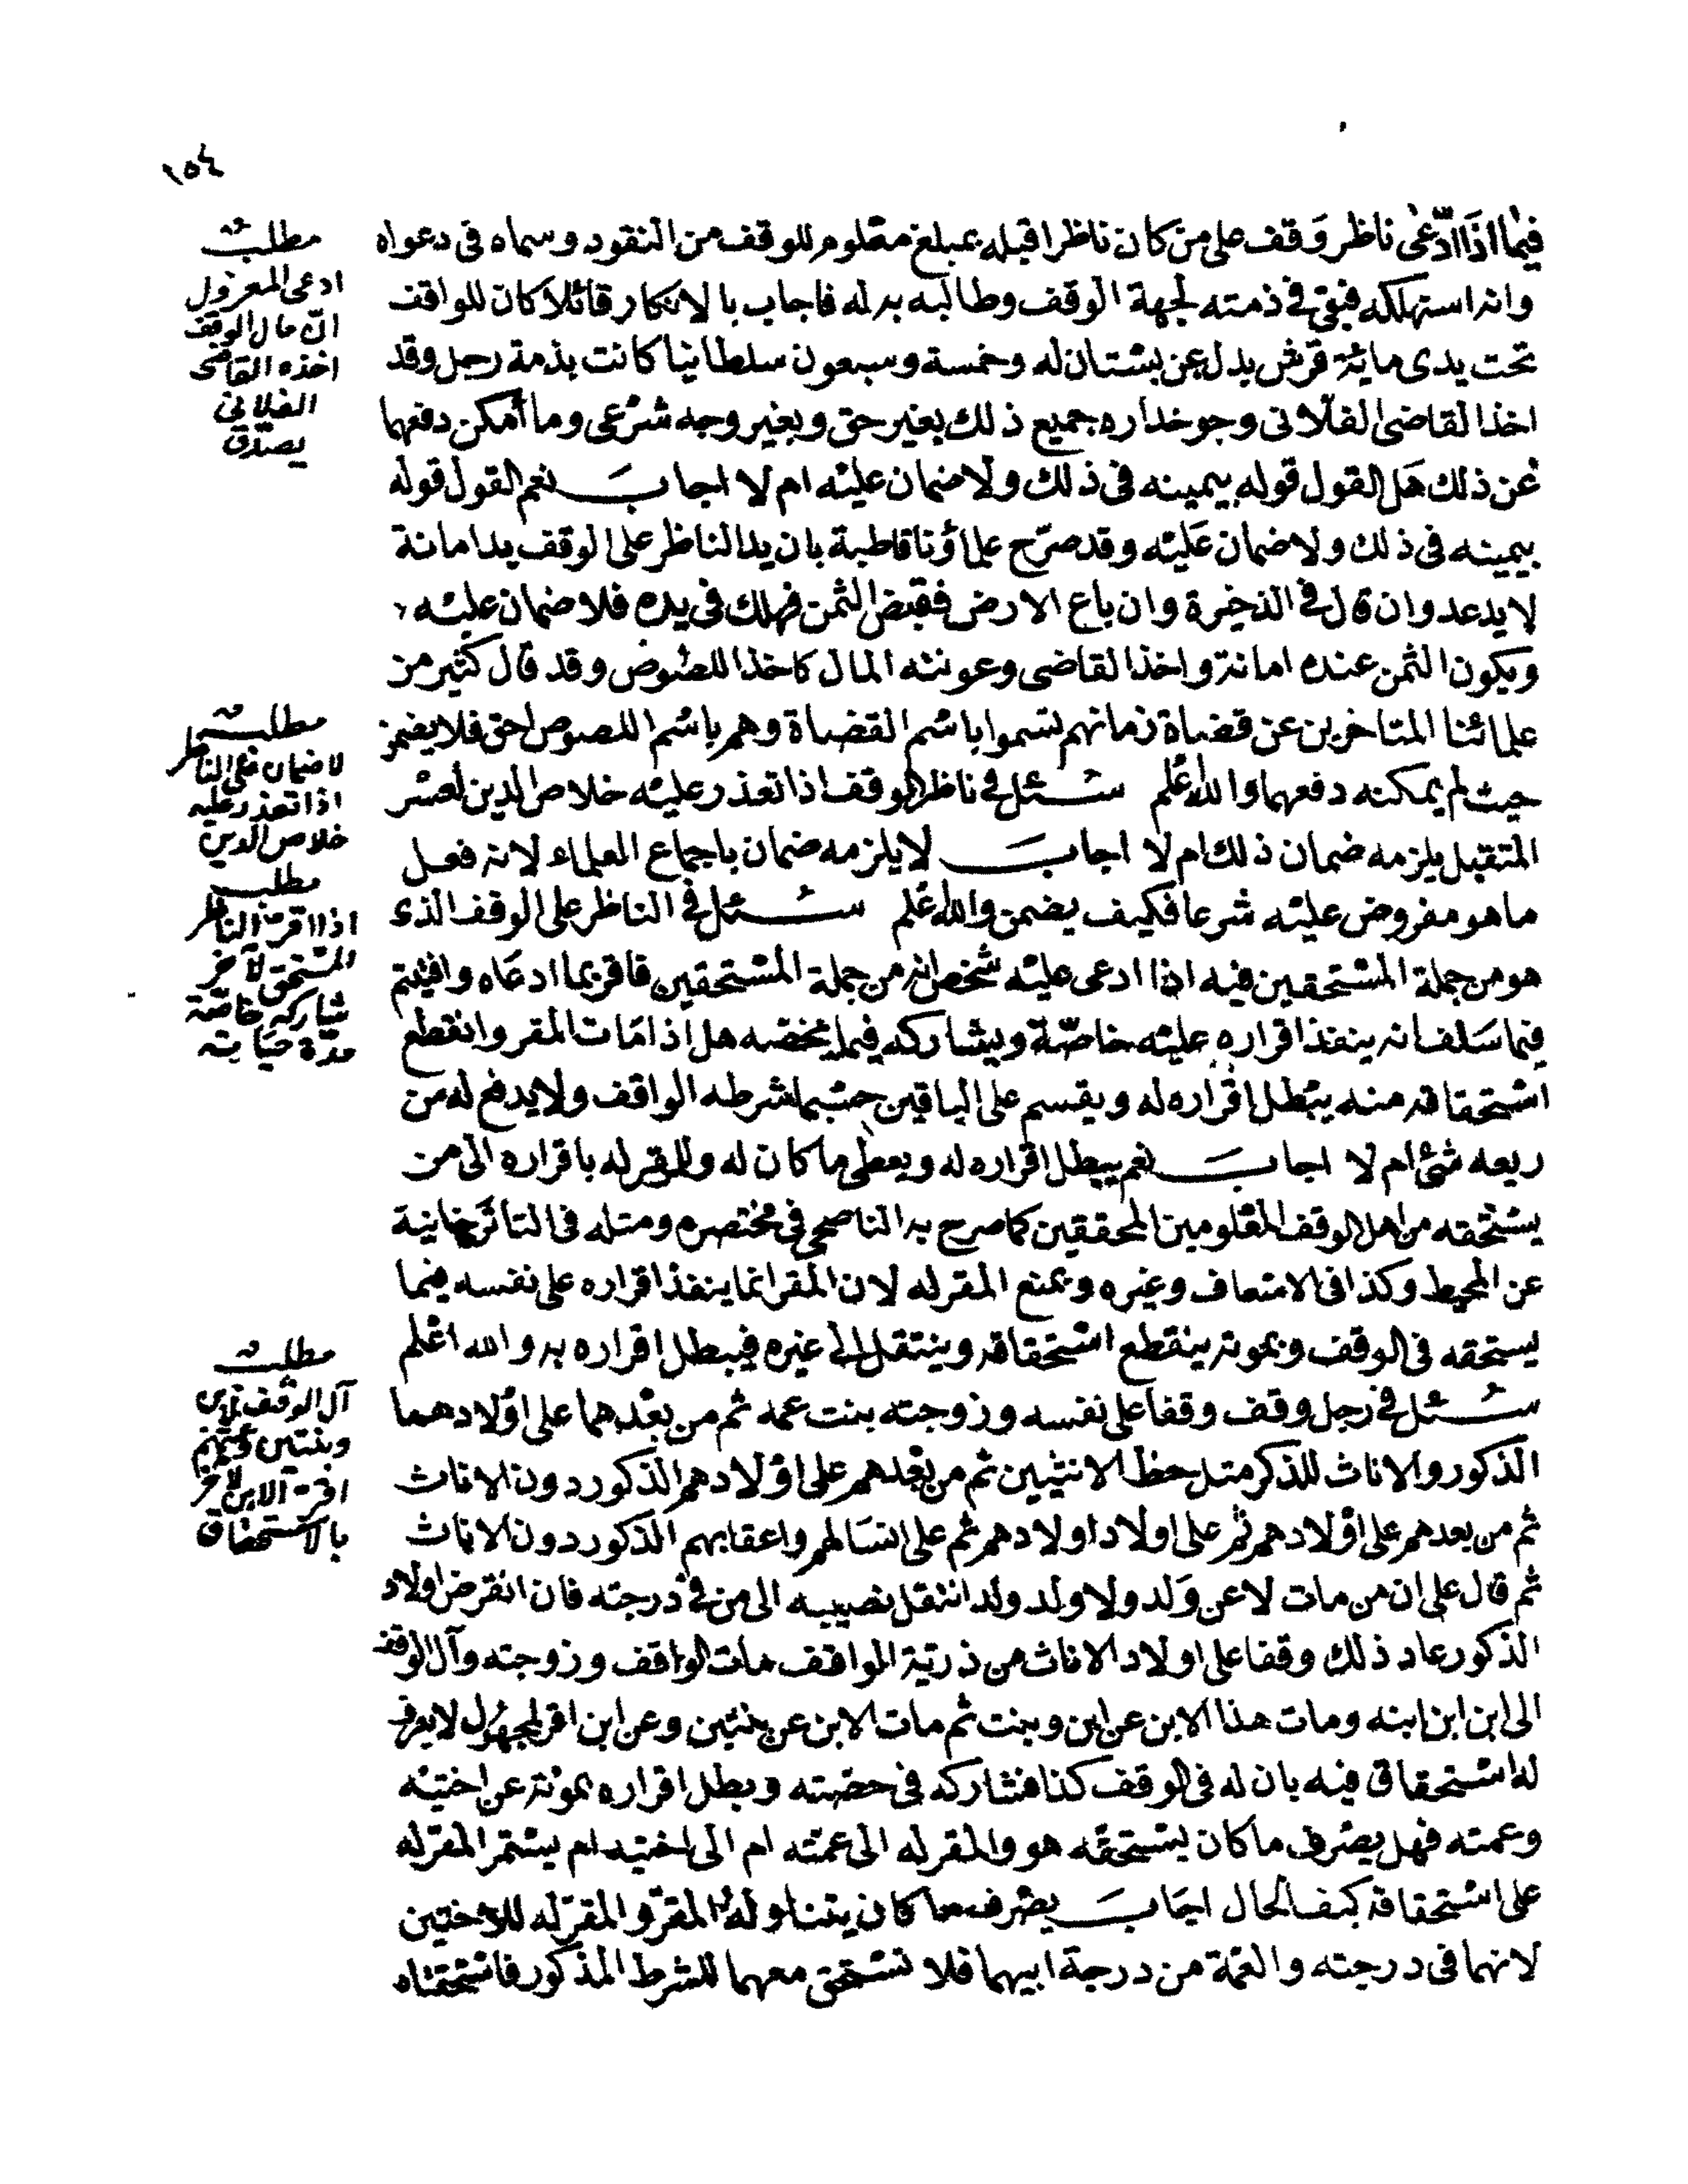 ١٥٤
فيما اذا ادّعى ناظر وقف على من كان ناظرا قبله بمبلغ معلوم للوقف من النقود وسماه فى دعواه
وانه استهلكه فبقى فى ذمته لجهة الوقف وطالبه به له فاجاب بالانكار قائلا كان للواقف
تحت يدى ماية قرش بدل عن بستان له وخمسة وسبعون سلطانيا كانت بذمة رجل وقد
اخذ القاضى الفلانى وجوخداره جميع ذلك بغير حق وبغير وجه شرعى وما امكن دفعهما
عن ذلك هل القول قوله بيمينه فى ذلك ولا ضمان عليه ام لا اجاب نعم القول قوله
بيمينه فى ذلك ولا ضمان عليه وقد صرّح علماؤنا قاطبة بان يد الناظر على الوقف يد امانة
لا يد عدوان قال فى الذخيرة وان باع الارض فقبض الثمن فهلك فى يده فلا ضمان عليه
ويكون الثمن عنده امانة واخذ القاضى وعونته المال كاخذ اللصوص وقد قال كثير من
علمائنا المتاخرين عن قضاة زمانهم تسموا باسم القضاة وهم باسم اللصوص احق فلا يضمن
حيث لم يمكنه دفعهما والله اعلم سئل فى ناظر الوقف اذا تعذر عليه خلاص الدين لعسر
المتقبل يلزمه ضمان ذلك ام لا اجاب لا يلزمه ضمان باجماع العلماء لانه فعل
ما هو مفروض عليه شرعا فكيف يضمن والله اعلم سئل فى الناظر على الوقف الذى
هو من جملة المستحقين فيه اذا ادعى عليه شخص انه من جملة المستحقين فاقر بما ادعاه وافيتم
فيما سلف انه ينفذ اقراره عليه خاصّة ويشاركه فيما يخصه هل اذا مات المقر وانقطع
استحقاقه منه يبطل اقراره له ويقسم على الباقين حسبما شرطه الواقف ولا يدفع له من
ريعه شئ ام لا اجاب نعم يبطل اقراره له ويعطى ما كان له وللمقر له باقراره الى من
يستحقه من اهل الوقف المعلومين المحققين كما صرح به الناصحى فى مختصره ومثله فى التاترخانية
عن المحيط وكذا فى الاسعاف وغيره ويمنع المقر له لان المقر انما ينفذ اقراره على نفسه فيما
يستحقه فى الوقف وبموته ينقطع استحقاقه وينتقل الى غيره فيبطل اقراره به والله اعلم
سئل فى رجل وقف وقفا على نفسه وزوجته بنت عمه ثم من بعدهما على اولادهما
الذكور والاناث للذكر مثل حظ الانثيين ثم من بعدهم على اولادهم الذكور دون الاناث
ثم من بعدهم على اولادهم ثم على اولاد اولادهم ثم على انسالهم واعقابهم الذكور دون الاناث
ثم قال على ان من مات لا عن ولد ولا ولد ولد انتقل نصيبه الى من فى درجته فان انقرض اولاد
الذكور عاد ذلك وقفا على اولاد الاناث من ذرية الواقف مات الواقف وزوجته وآل الوقف
الى ابن ابن ابنه ومات هذا الابن عن ابن وبنت ثم مات الابن عن بنتين وعن ابن اقر لمجهول لا يعرف
له استحقاق فيه بان له فى الوقف كذا فشاركه فى حصته وبطل اقراره بموته عن اختيه
وعمته فهل يصرف ما كان يستحقه هو والمقر له الى عمته ام الى اختيه ام يستمر المقر له
على استحقاقه كيف الحال اجاب يصرف ما كان يتناوله المقرّ والمقرّ له للاختين
لانهما فى درجته والعمة من درجة ابيهما فلا تستحق معهما للشرط المذكور فاستحقتاه
مطلب
ادعى المعزول
انّ مال الوقف
اخذه القاضى
الفلانى
يصدّق
مطلب
لا ضمان على الناظر
اذا تعذر عليه
خلاص الدين
مطلب
اذا اقر الناظر
المستحق لآخر
شاركه خاصّة
مدّة حياته
مطلب
آل الوقف لابن
وبنتين وعمتهم
اقر الابن لآخر
بالاستحقاق